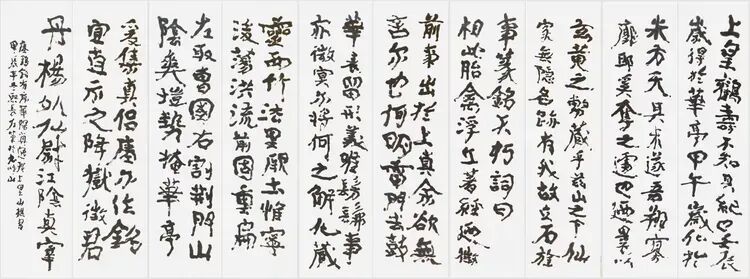 上皇鶴壽不知其紀也壬辰
歲得於華亭甲午歲化於
朱方天其未遂吾翔寥
廓耶奚奪之遽也廼裹以
玄黄之幣藏乎兹山之下仙
家無隱名跡有我故立石旌
事篆銘不朽詞曰
相此胎禽浮丘著經廼徵
前事出於上真余欲無
言爾也何明雷門去鼓
華表留形義唯髣髴事
亦微冥爾將何之解化藏
靈西竹法里厥土惟寧
後蕩洪流前固重扃
左取曹國右割荆門山
陰爽塏勢掩華亭
爰集真侣瘞爾作銘
宜直示之降嶽徵君
丹楊外仙尉江陰真宰